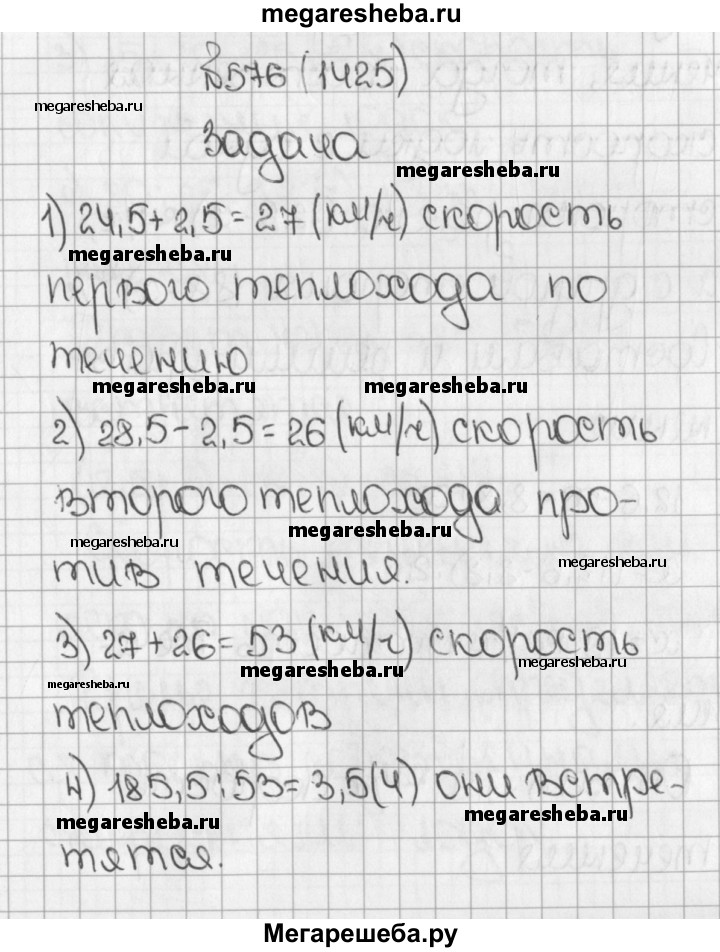 megaresheba.ru
№576 (1425)
megaresheba.ru
задача
megaresheba.ru
1) 24,5+2,5=27 (км/ч) скорость
megaresheba.ru
первого теплохода по
течению
megaresheba.ru megaresheba.ru
2) 28,5-2,5=26 (км/ч) скорость
второго теплохода про-
megaresheba.ru megaresheba.ru
тив течения.
megaresheba.ru
3) 27+26=53 (км/ч) скорость
megaresheba.ru megaresheba.ru
megaresheba.ru
теплоходов
4) 185,5:53=3,5(ч) они встре-
megaresheba.ru megaresheba.ru
тятся.
Мегарешеба.ру